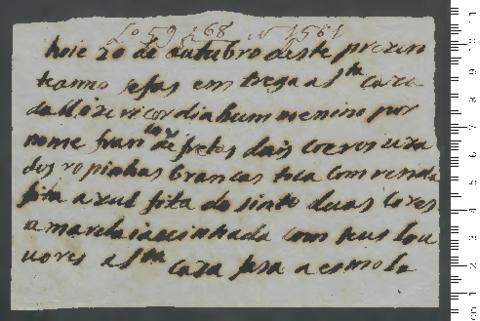 Lo 59 f 68 nº 1581
hoie 20 de outubro deste prezen
te anno sefas em trega a sta caza
da Mizericordia hum menino por
nome fran.co de fretas dois coeros uza
dos ropinhas brancas toca com renda
fita azul fita do sinto duas cores
amarela asinhada com seus lou
uores a sta caza fasa a esmola